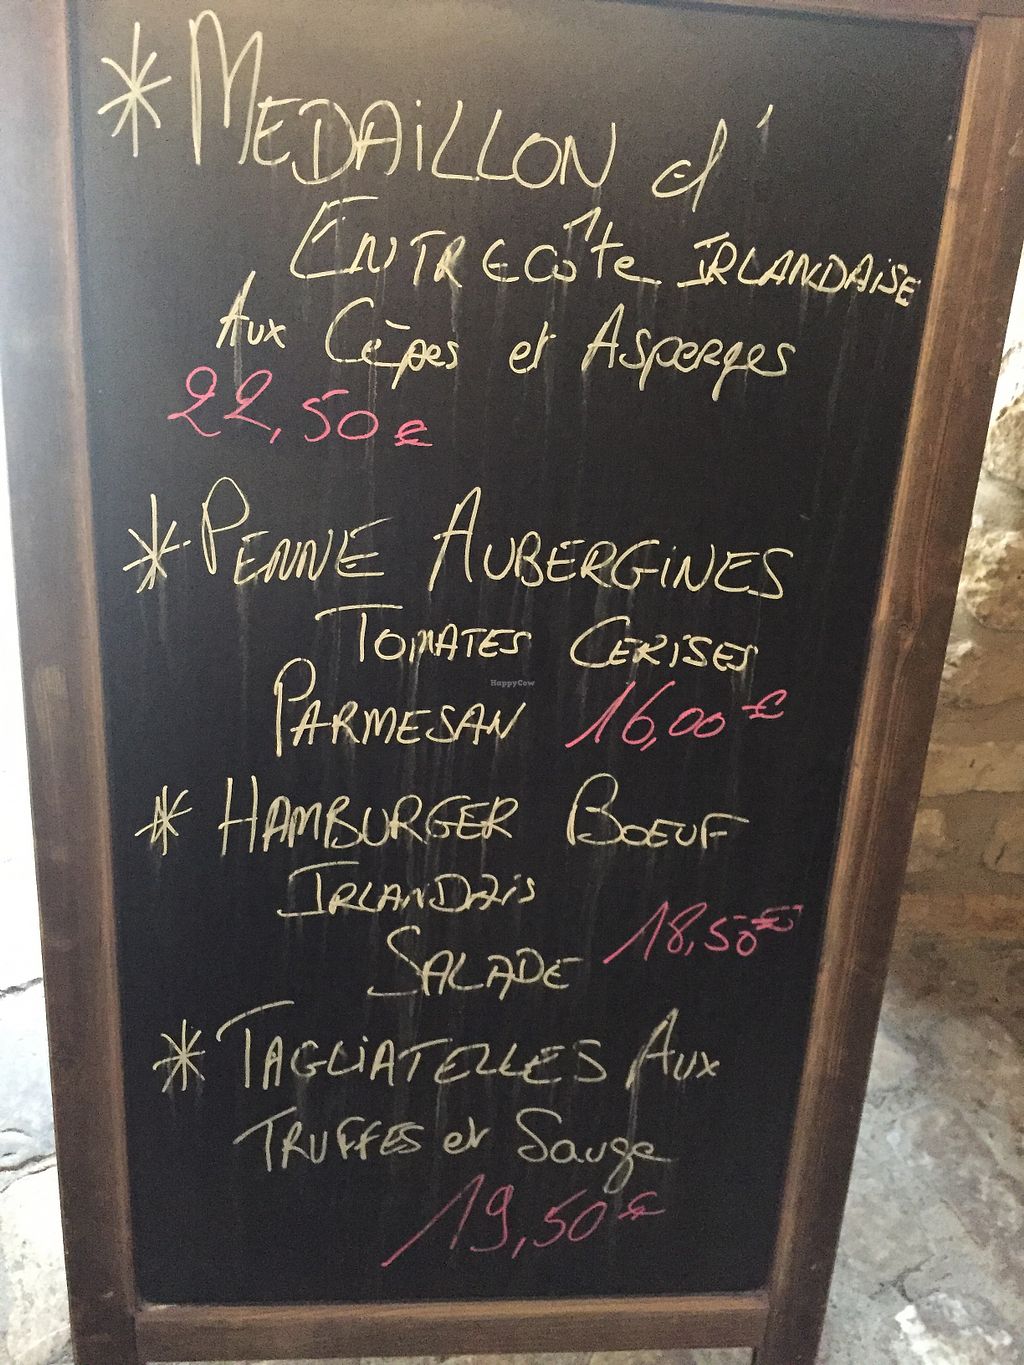 * MEDAiLLON d'
ENTRECôte IRLANDAiSE
Aux Cèpes et Asperges
22,50€
* PENNE AUBERGiNES
TOMATES CERISES
HappyCow
PARMESAN 16,00€
* HAMBURGER BOEUF
IRLANDAis
SALADE 18,50€
* TAGLiATELLES AUX
TRUFFES et Sauge
19,50€